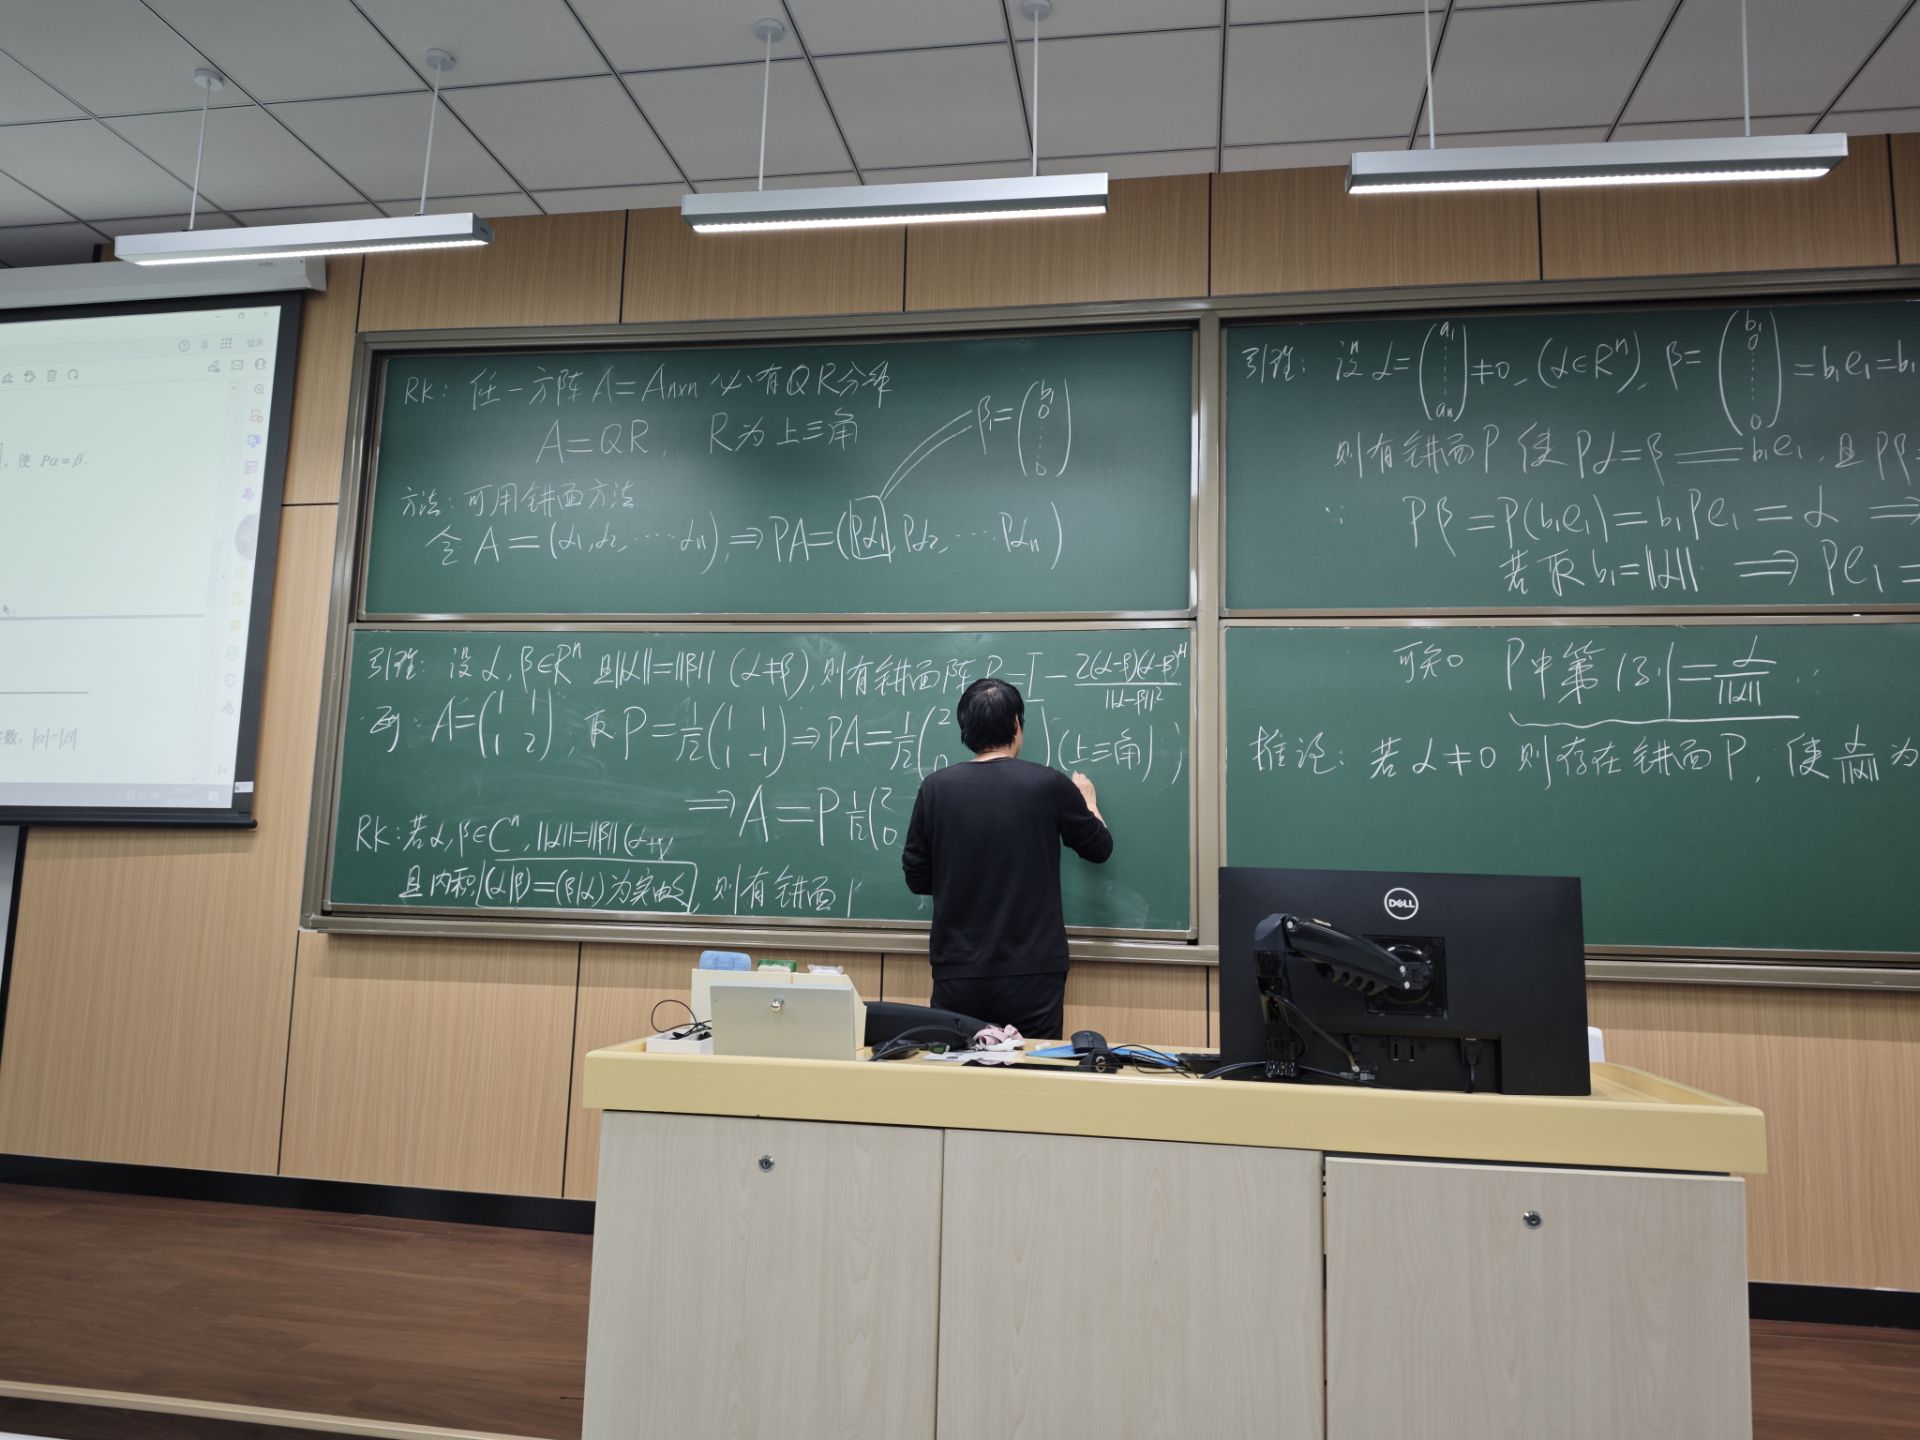 登录
, 使 Pα=β.
数, |α|=|β|
RK: 任一方阵 A=Aₙₓₙ 必有QR分解
A=QR, R为上三角
β₁=(b₁ 0 ⋮ 0)
方法: 可用镜面方法
令 A=(α₁,α₂,⋯αₙ),⇒PA=(Pα₁,Pα₂,⋯Pαₙ)
引理: 设α,β∈Rⁿ 且||α||=||β|| (α≠β),则有镜面阵P=I-2(α-β)(α-β)ᴴ/||α-β||²
A=(1 1; 1 2), 取P=1/√2(1 1; 1 -1)⇒PA=1/√2(2 0)(上三角);
⇒A=P1/√2(2 0
RK:若α,β∈Cⁿ,||α||=||β||(α≠
且内积(α|β)=(β|α)为实, 则有镜面
引理: 设α=(a₁ ⋮ aₙ)≠0, (α∈Rⁿ), β=(b₁ 0 ⋮ 0)=b₁e₁=b₁
则有镜面P使Pα=β=b₁e₁, 且Pβ=
∵ Pβ=P(b₁e₁)=b₁Pe₁=α⇒
若取b₁=||α|| ⇒Pe₁=
可知 P中第1列=α/||α||
推论: 若α≠0 则存在镜面P, 使α/||α||为
DELL